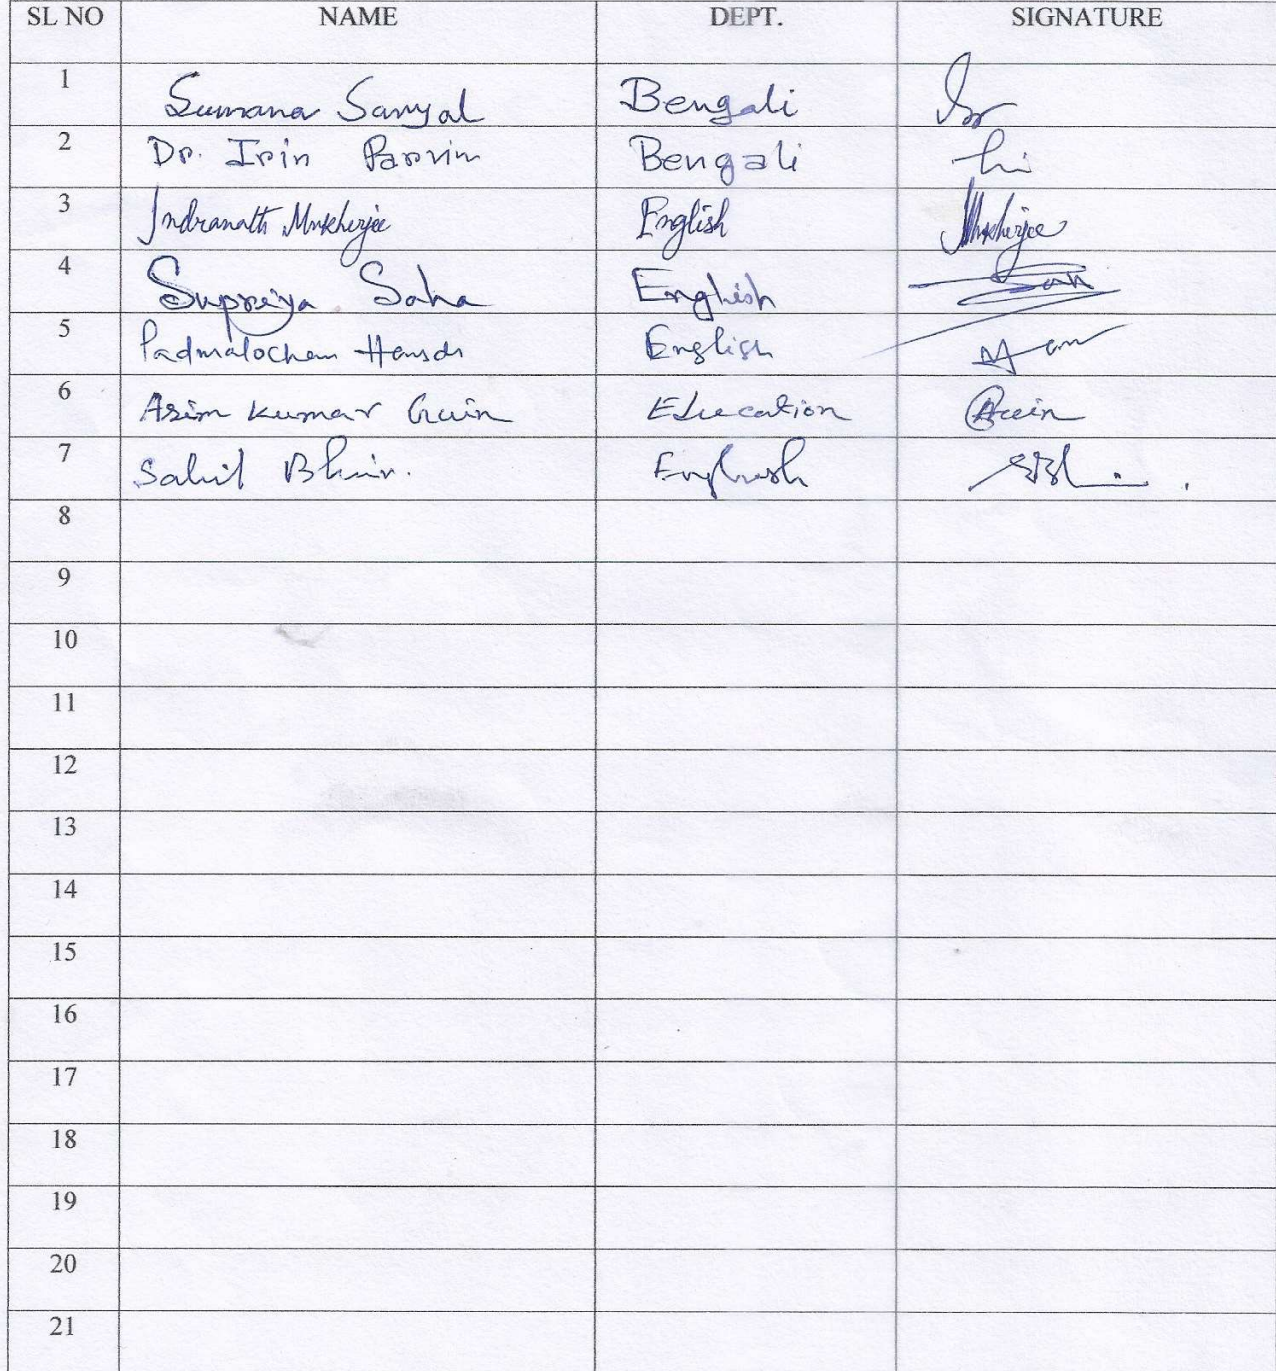 SL NO NAME DEPT. SIGNATURE
1 Sumana Sanyal Bengali
2 Dr. Irin Parvin Bengali
3 Indranath Mukherjee English Mukherjee
4 Supriya Saha English
5 Padmalochan Hansda English
6 Asim Kumar Guin Education Guin
7 Sahil Bhuin. English
8
9
10
11
12
13
14
15
16
17
18
19
20
21